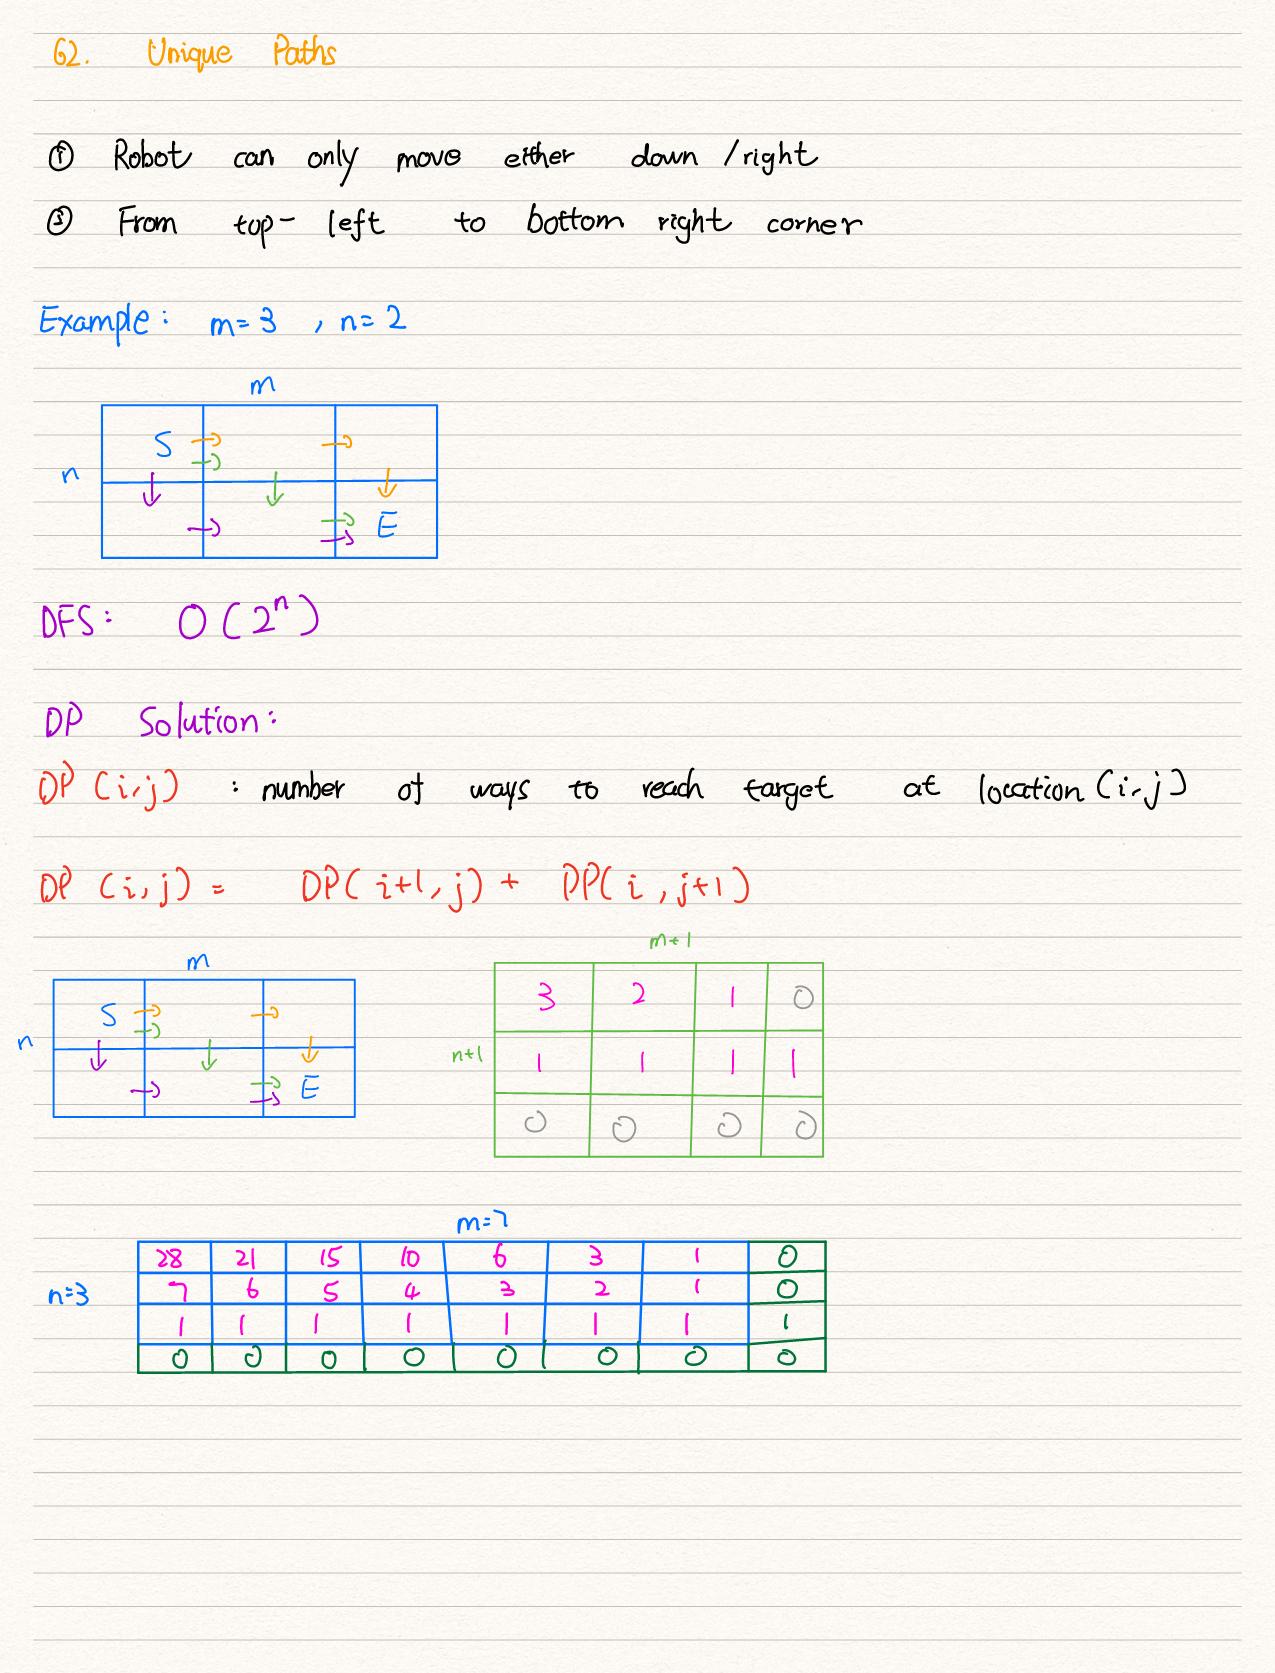 62. Unique Paths
① Robot can only move either down /right
② From top-left to bottom right corner
Example: m=3 , n=2
m
S
n
E
DFS: O(2^n)
DP Solution:
DP (i,j) : number of ways to reach target at location (i,j)
DP (i,j) = DP(i+1,j) + DP(i,j+1)
m
S
n
E
m+1
3 2 1 0
n+1 1 1 1 1
0 0 0 0
m=7
28 21 15 10 6 3 1 0
n=3 7 6 5 4 3 2 1 0
1 1 1 1 1 1 1 1
0 0 0 0 0 0 0 0